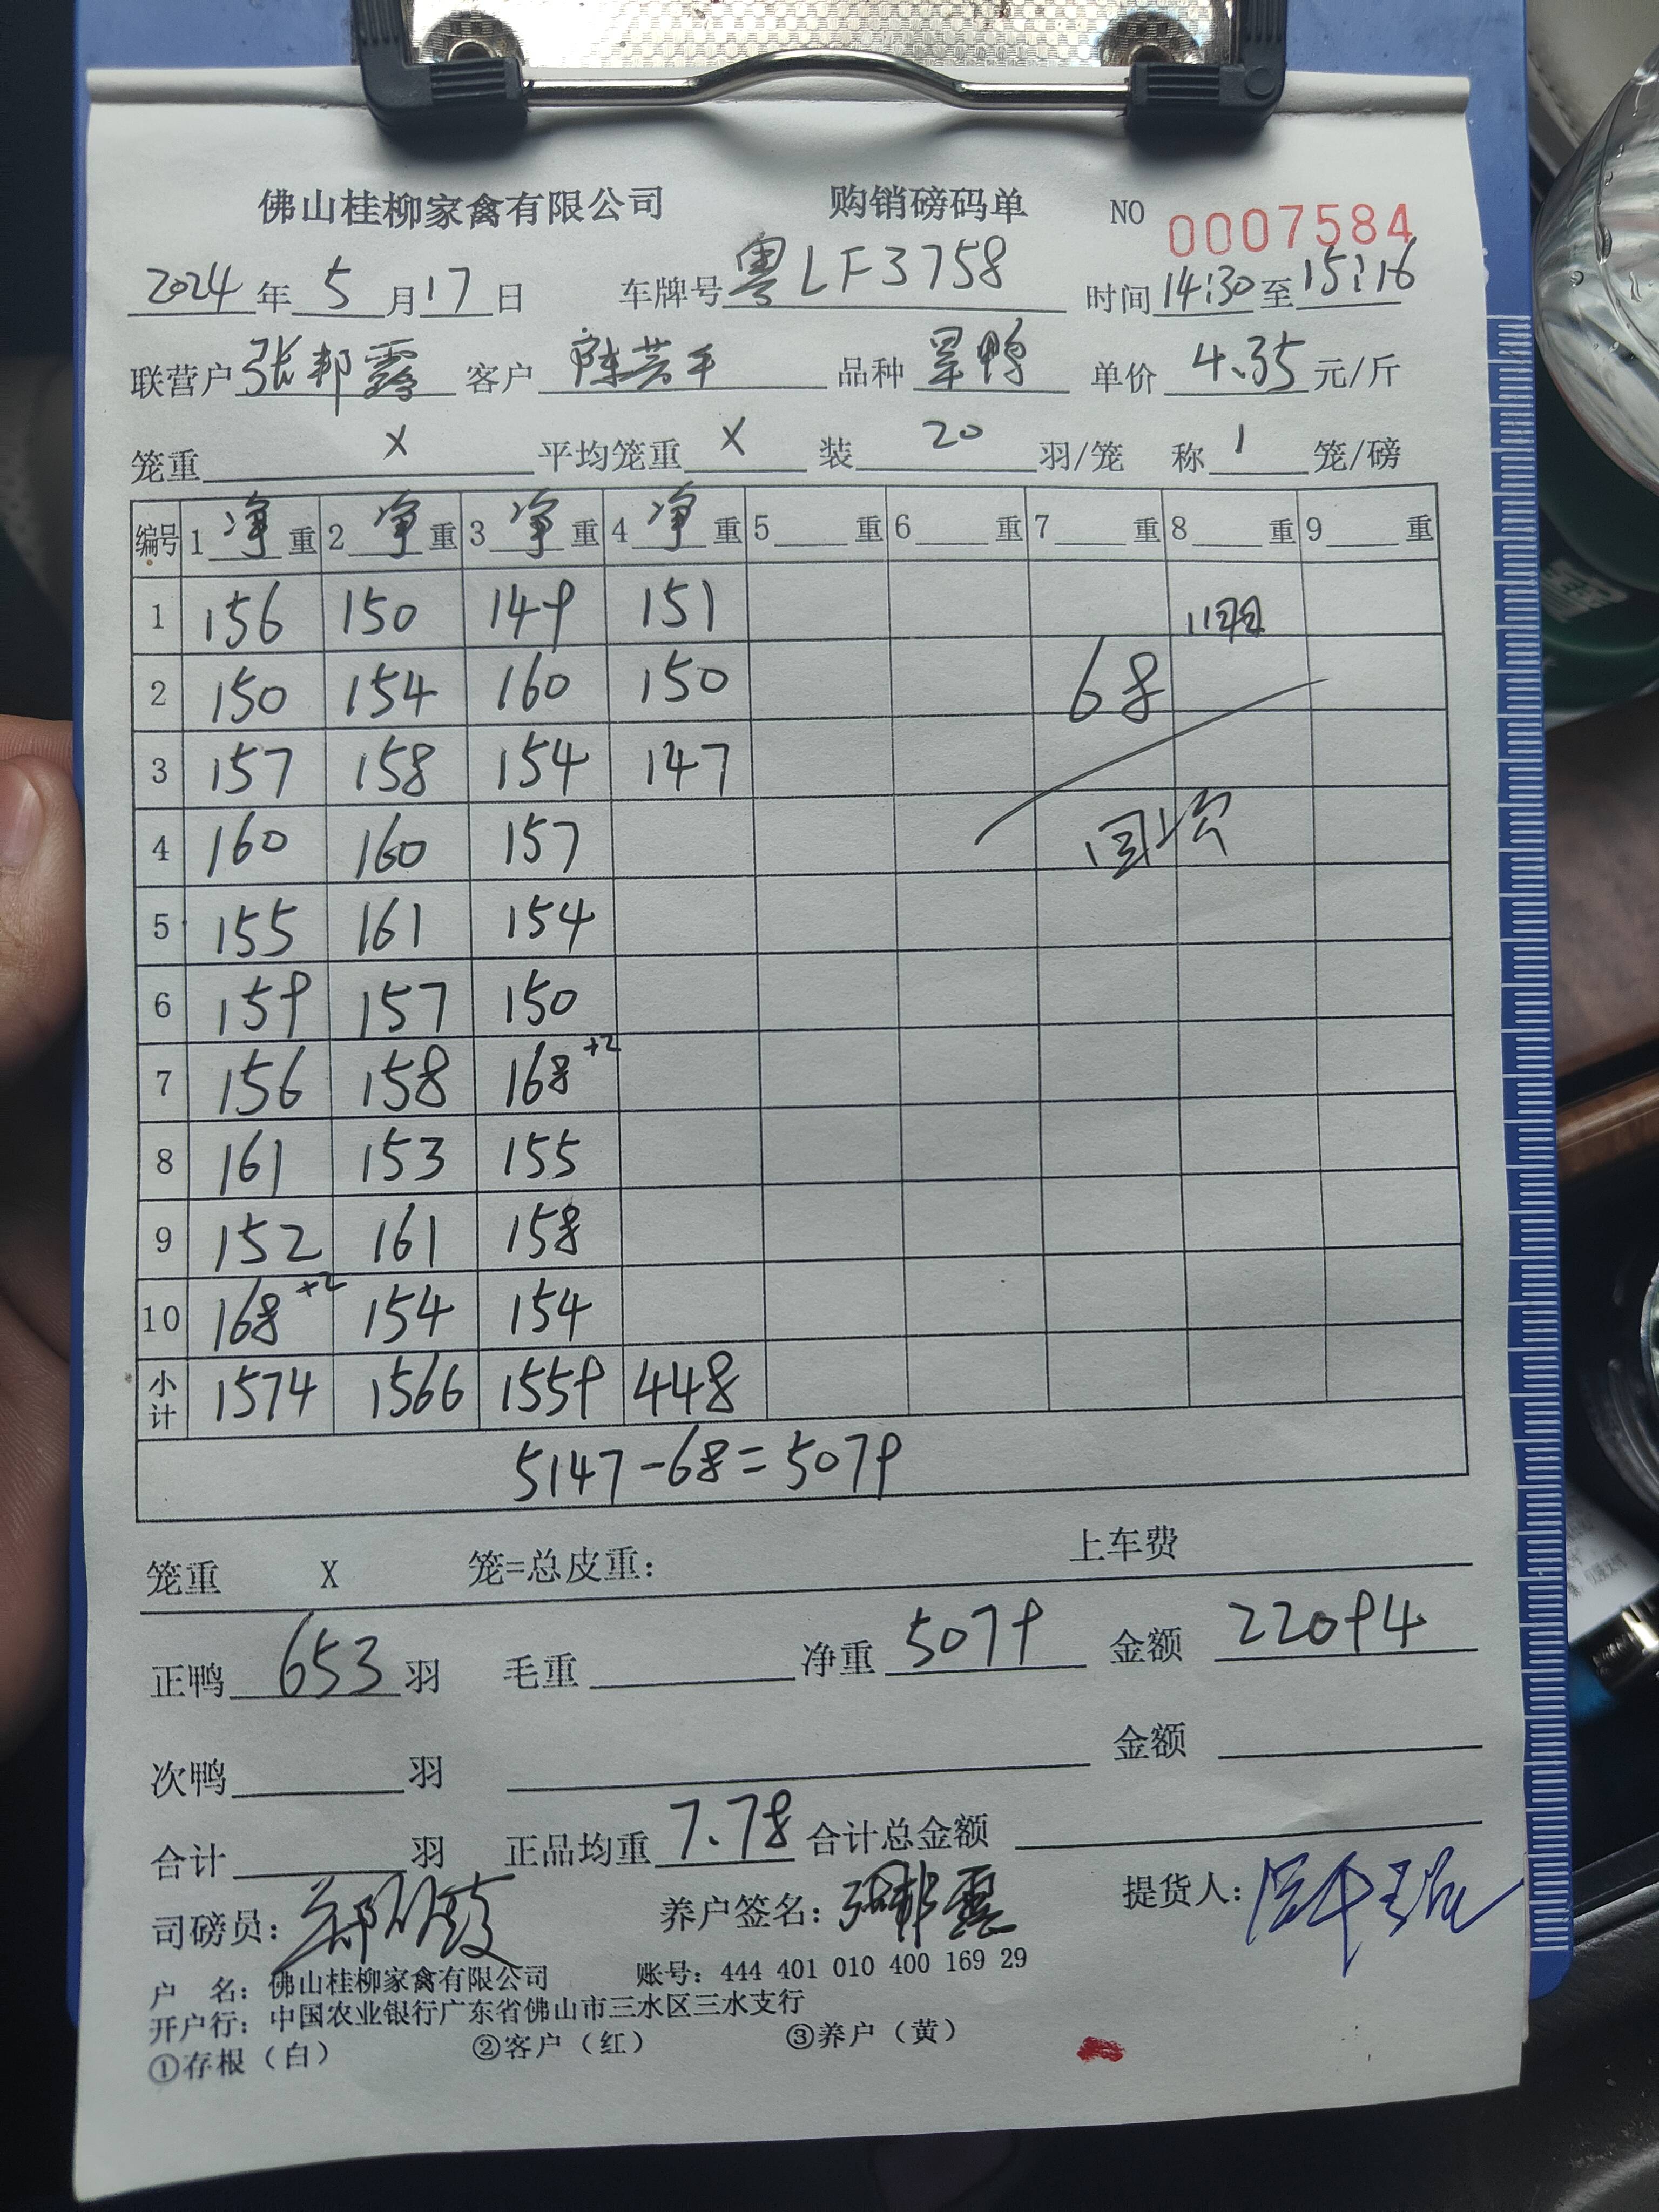 佛山桂柳家禽有限公司 购销磅码单 NO 0007584
2024年5月17日 车牌号粤LF3758 时间14:30至15:16
联营户张邦霭 客户陈芸平 品种 单价4.35元/斤
笼重 X 平均笼重 X 装 20 羽/笼 称 1 笼/磅
编号 1净重 2净重 3净重 4净重 5 重 6 重 7 重 8 重 9 重
1 156 150 149 151
2 150 154 160 150 68
3 157 158 154 147
4 160 160 157 回
5 155 161 154
6 159 157 150
7 156 158 168+2
8 161 153 155
9 152 161 158
10 168+2 154 154
小计 1574 1566 1559 448
5147-68=5079
笼重 X 笼=总皮重: 上车费
正鸭653羽 毛重 净重5079 金额22094
次鸭 羽 金额
合计 羽 正品均重7.78 合计总金额
司磅员: 养户签名: 提货人:
户 名: 佛山桂柳家禽有限公司 账号: 444 401 010 400 169 29
开户行: 中国农业银行广东省佛山市三水区三水支行
①存根(白) ②客户(红) ③养户(黄)